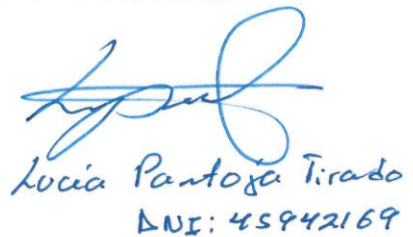 Lucía Pantoja Tirado
DNI: 45942169